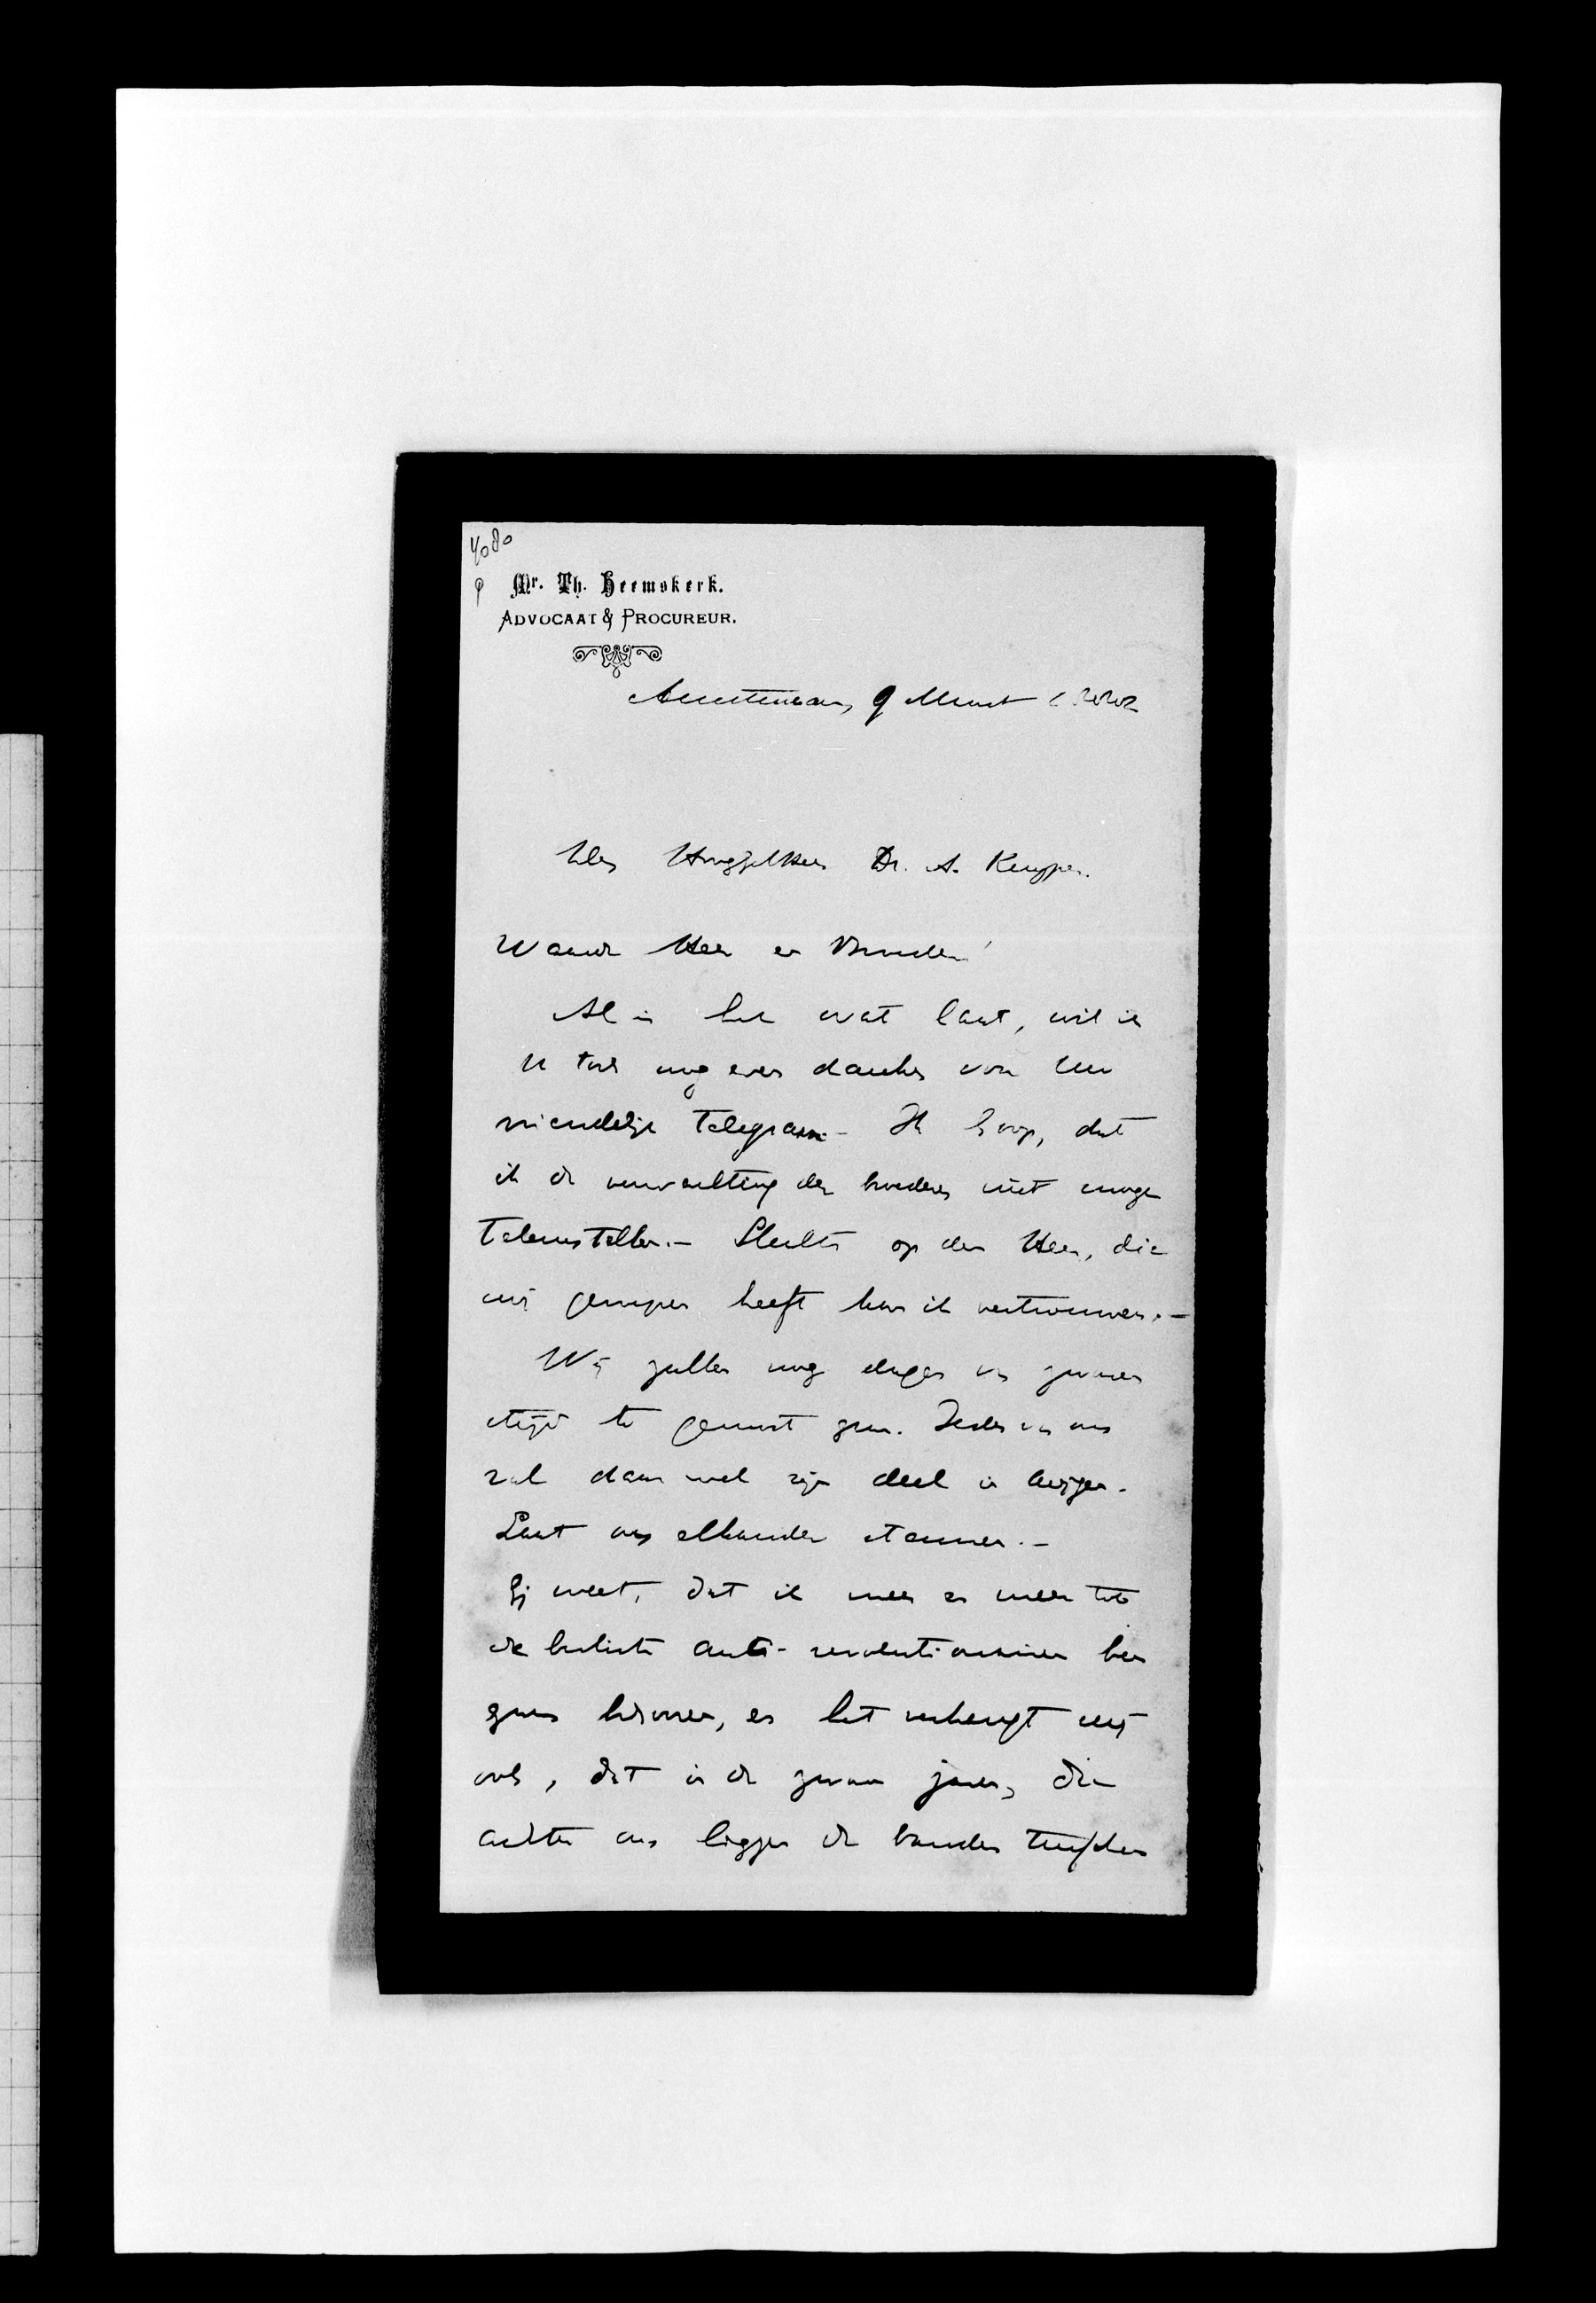 4080
Mr. Th. Heemskerk.
ADVOCAAT & PROCUREUR.
Amsterdam, 9 Maart 1888
Den Hooggel Heer Dr. A. Kuyper.
Waarde Heer en Broeder!
Al is het wat laat, wil ik
U toch nog even danken voor Uw
vriendelijk telegram - Ik hoop, dat
ik de verwachting der broeders niet moge
teleurstellen. - Slechts op den Heer, die
mij geroepen heeft kan ik vertrouwen. -
Wij zullen nog dagen van zwaren
strijd te gemoet gaan. Ieder van ons
zal daar wel zijn deel in krijgen.
Laat ons elkander steunen. -
Gij weet, dat ik meer en meer tot
de besliste anti-revolutionairen ben
gaan behooren, en het verheugt mij
ook, dat in de zware jaren, die
achter ons liggen de banden tusschen